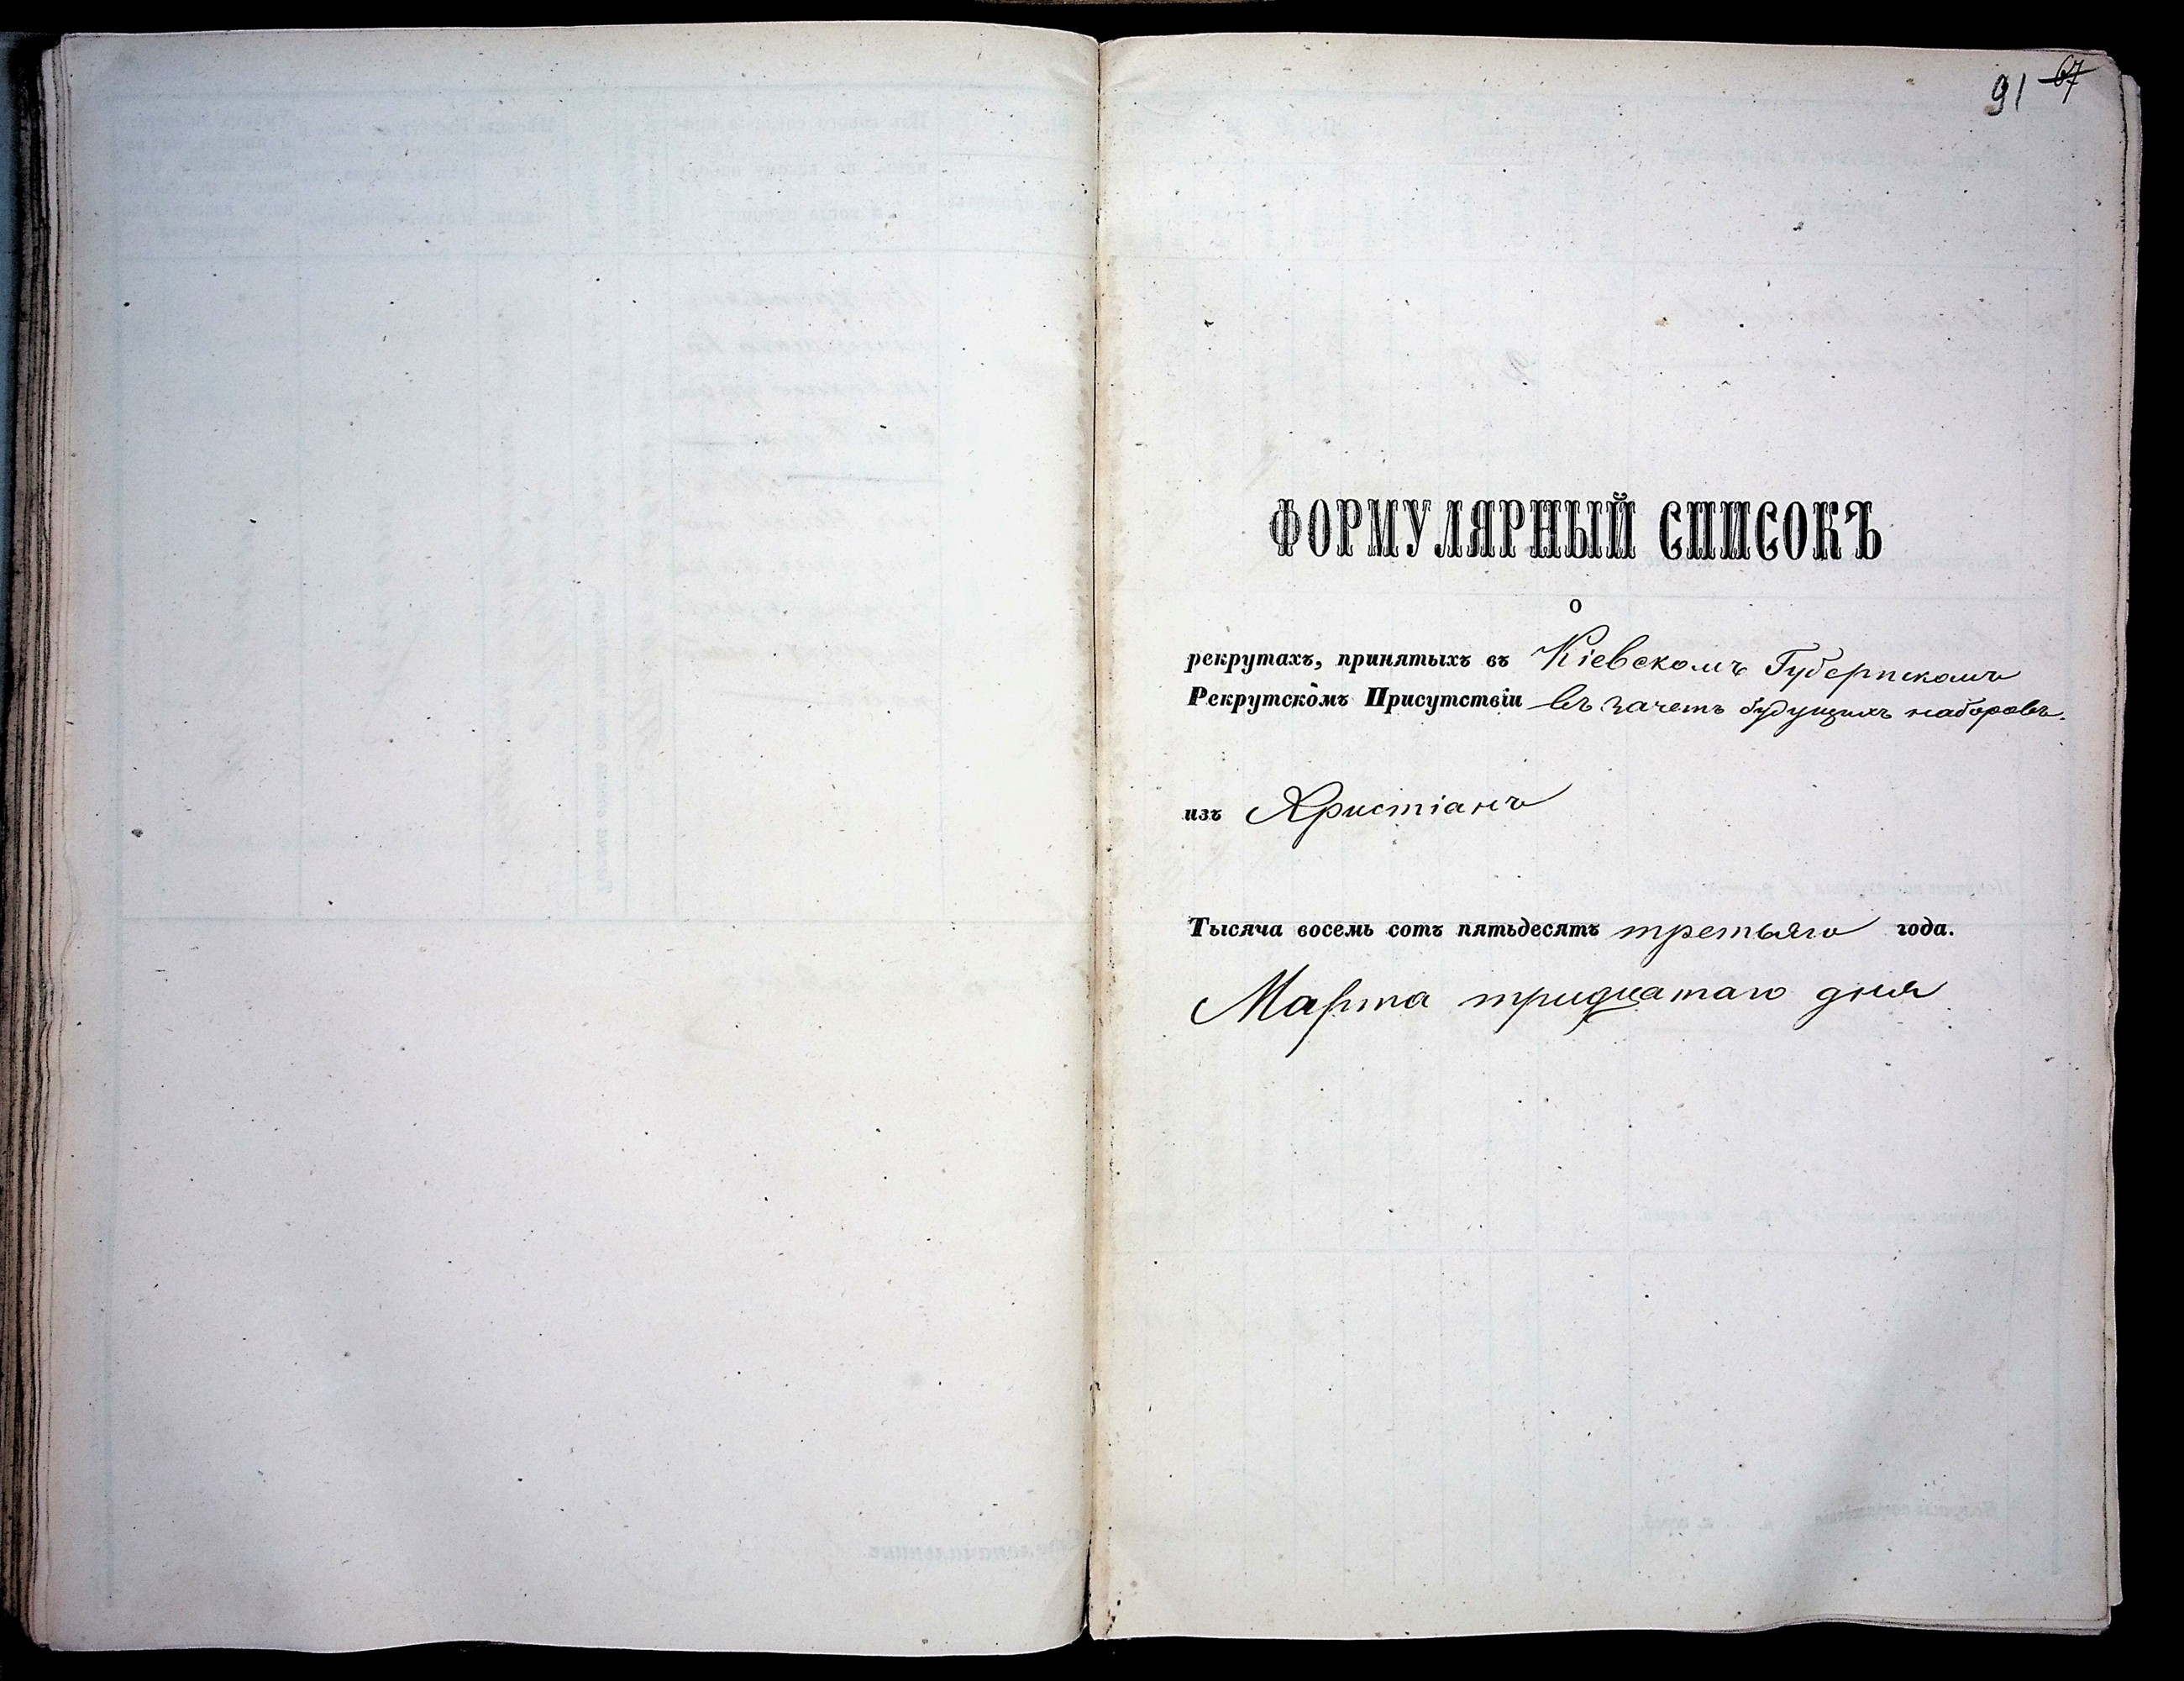 91 67
ФОРМУЛЯРНЫЙ СПИСОКЪ
о
рекрутахъ, принятыхъ въ Кіевскомъ Губернскомъ
Рекрутскомъ Присутствіи въ зачетъ будущихъ наборовъ.
изъ Христіанъ
Тысяча восемь сотъ пятьдесятъ третьяго года.
Марта тридцатаго дня